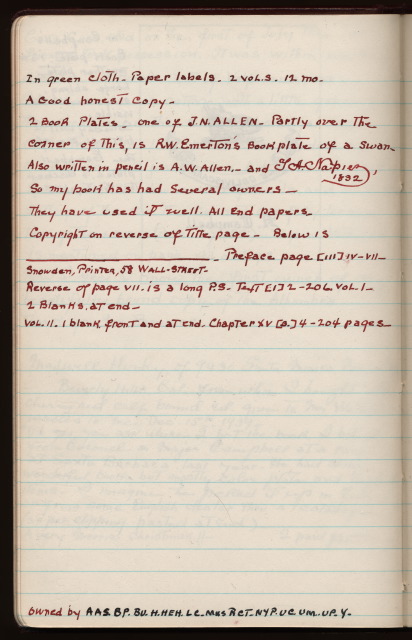 In green cloth. Paper labels. 2 vol.s. 12 mo.
A Good honest Copy -
2 Book Plates - one of J.N. ALLEN - Partly over the
corner of this, is R.W. Emerton's Bookplate of a Swan.
Also written in pencil is A.W. Allen, - and J.A. Napier,
1832
So my book has had several owners -
They have used it well. All End papers.
Copyright on reverse of Title page - Below is
- Preface page [III] IV - VII -
Snowden, Printer, 58 WALL-STREET.
Reverse of page VII. is a long P.S. - Text [1] 2 - 206 VOL. I -
2 Blanks. at end -
VOL. II. 1 blank front and at End. Chapter XV [p.] 4 - 204 pages -
Owned by AAS. BP. BU. H. HEH. LC. MHS RCT. NYP. UC. UM. UP. Y -